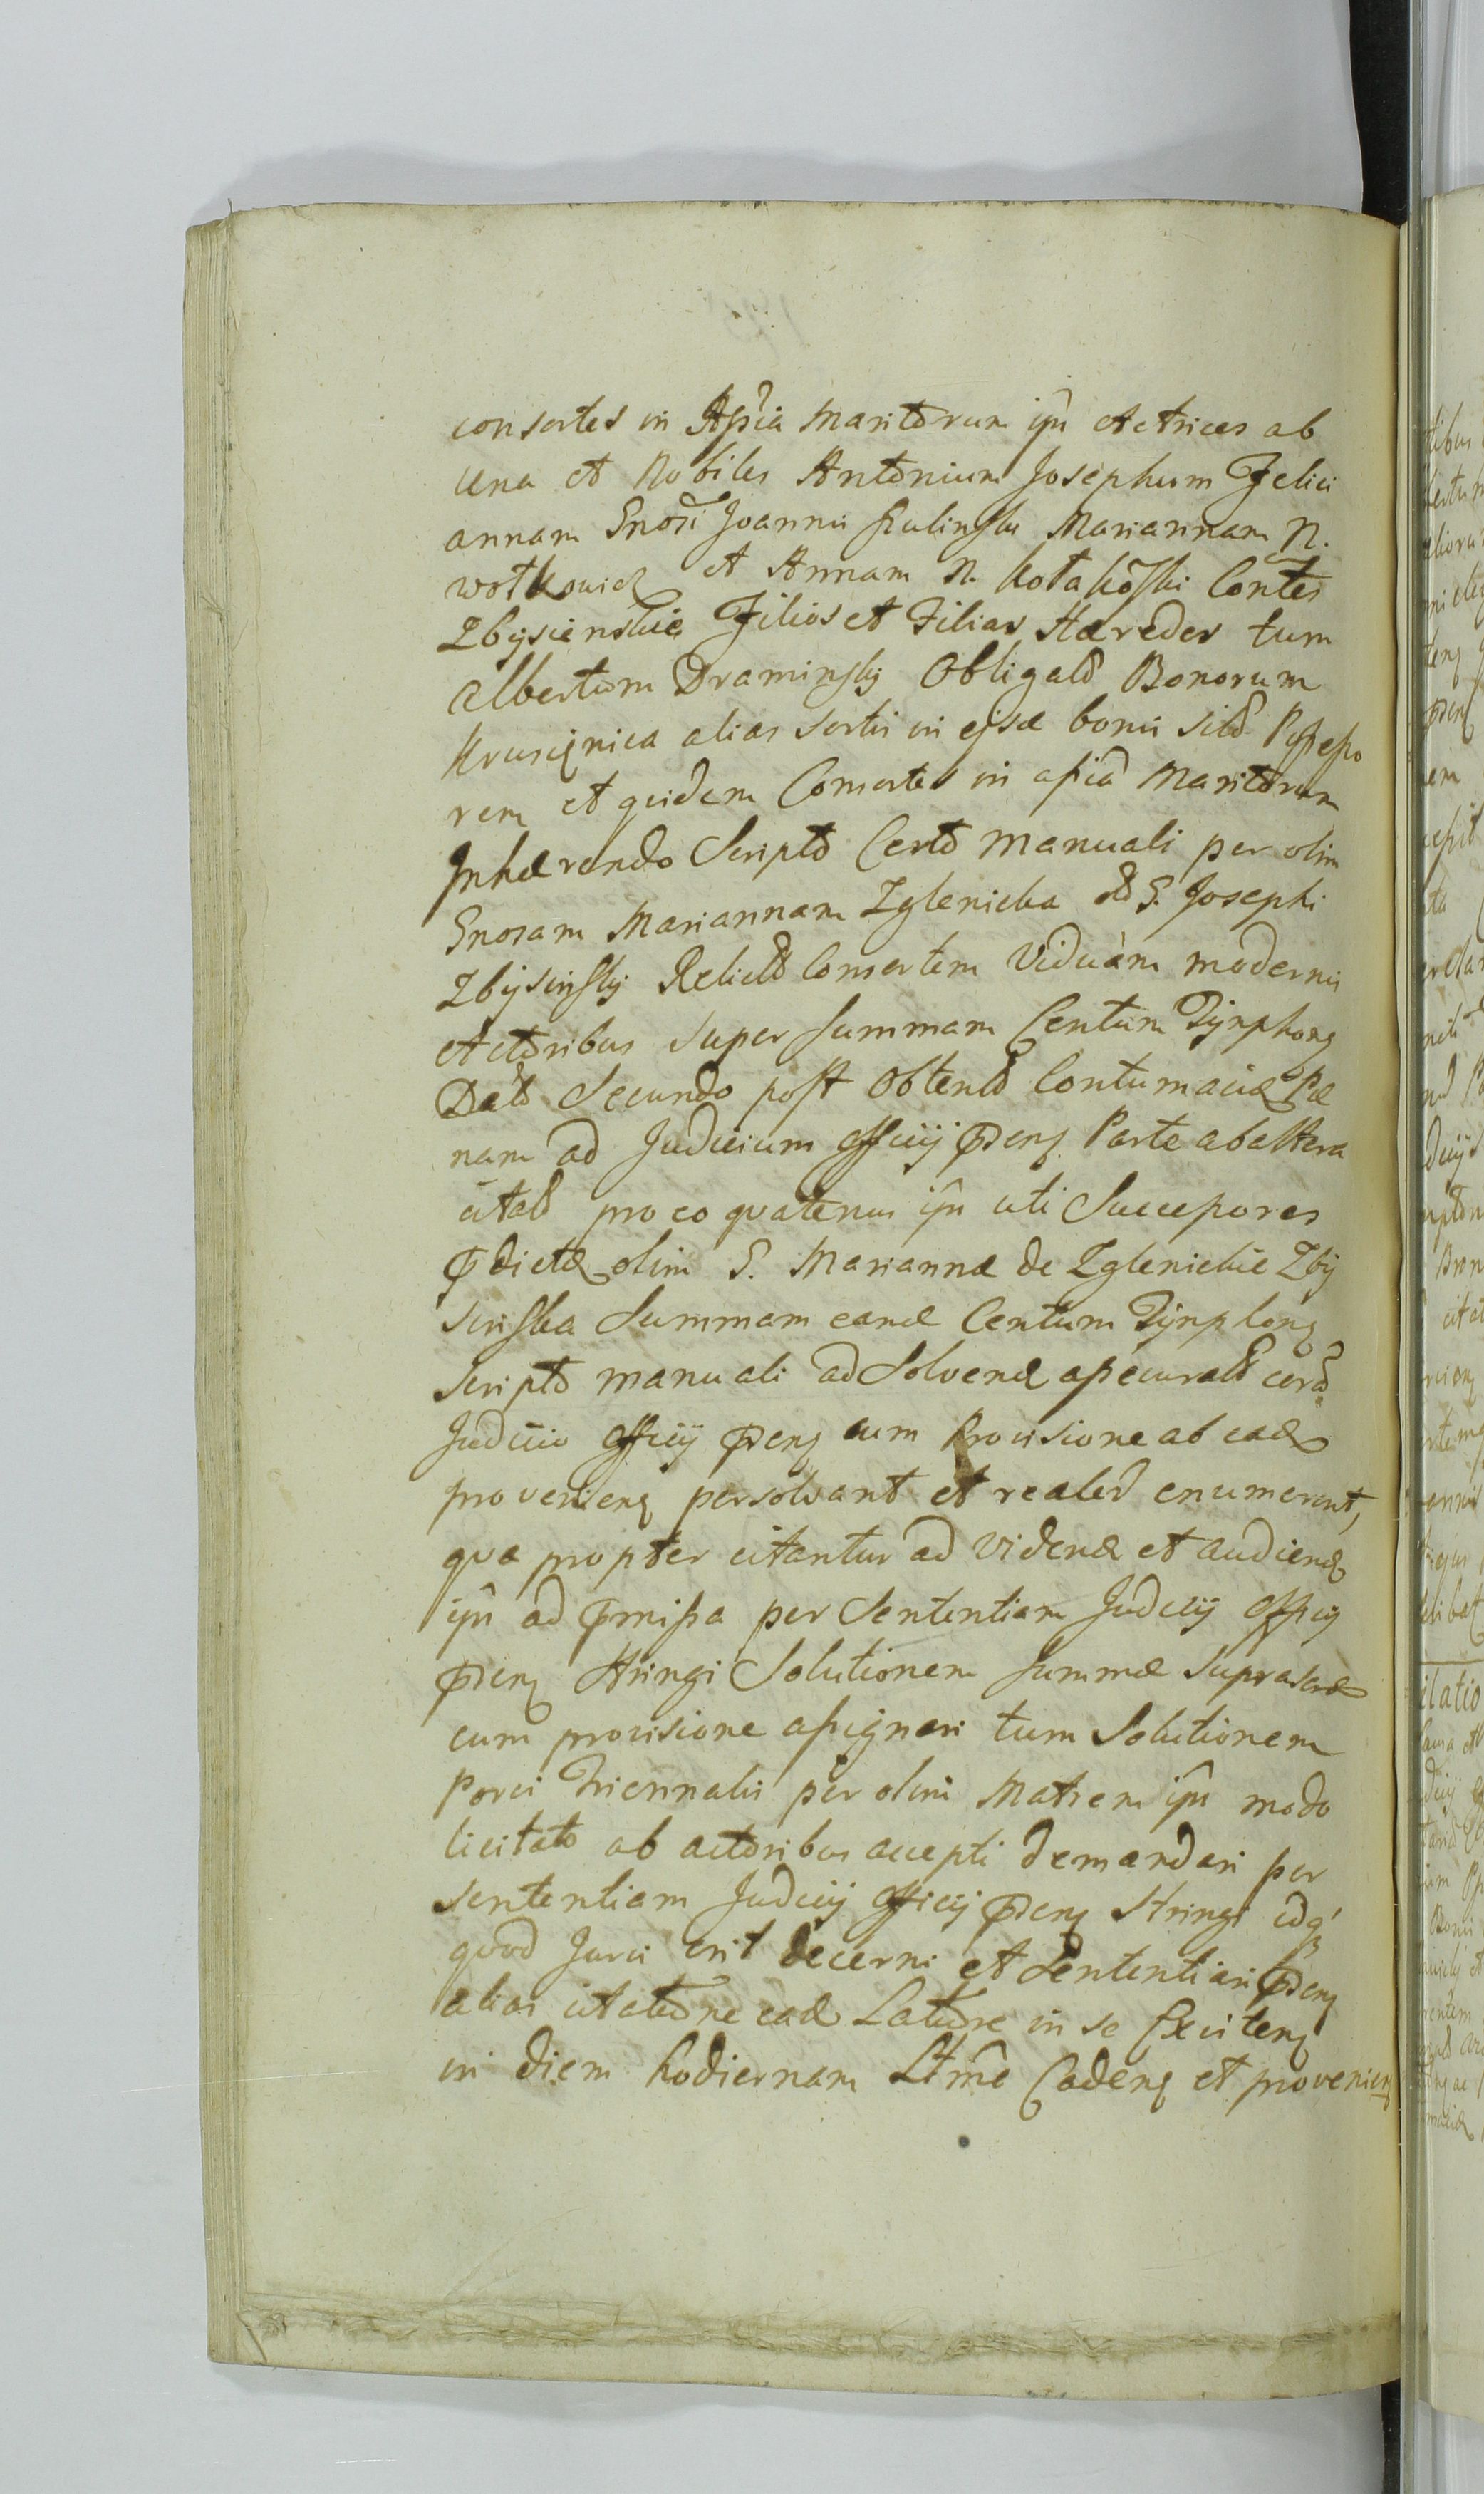 consortes in Assia Maritorum ipis Actrices ab
una et Nobiles Antonium Josephum Felici
annam Gnosi Joannis Rulinski Mariannam N.
wotkowicz et Annam N. Kotakoski Contes
Zbysienskie Filios et Filias Hæredes tum
Albertum Draminskij Obligato Bonorum
Krusignica alias Sortis in ejsd bonis sito Possesso
rem et quidem Consortes in assia Maritorum
Inhærendo Scripto Certo manuali per olim
Gnosam Mariannam Zglenicka olo G. Josephi
Zbijsinskij Relicto Consortem Viduam modernis
Actoribus Super Summam Centum Tynphonꝫ
Dato Secundo post Obtento Contumaciæ Pæ
nam ad Judicium Officij pñenꝫ Parte ab altera
citato pro eo quatenus ipi uti Successores
pdictæ olim G. Mariannæ de Zglenickie Zbij
sinska Summam eand Centum Tynphonꝫ
Scripto manuali ad Solvend assecurato corã
Judicio Officij pñenꝫ cum Provisione ab ead
provenienꝫ persolvant et realr enumerent,
qua propter citantur ad Videnđ et audienđ
ipis ad pmissa per Sententiam Judicij Officij
pñenꝫ Stringi Solutionem Summæ Suprascr
cum provisione assignari tum Solutionem
Porci Triennalis per olim Matrem ipis modo
licitato ab actoribus accepti demandari per
Sententiam Judicij Officij pñenꝫ Stringi idqꝫ
quod Juris erit decerni et Sententiari pñenꝫ
alias citatione ead Latiore in se Existenꝫ
in diem hodiernam Ltme Cadenꝫ et provenienꝫ